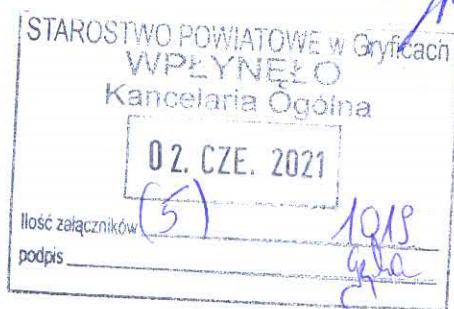 STAROSTWO POWIATOWE w Gryficach
WPŁYNĘŁO
Kancelaria Ogólna
02. CZE. 2021
Ilość załączników (5)
podpis